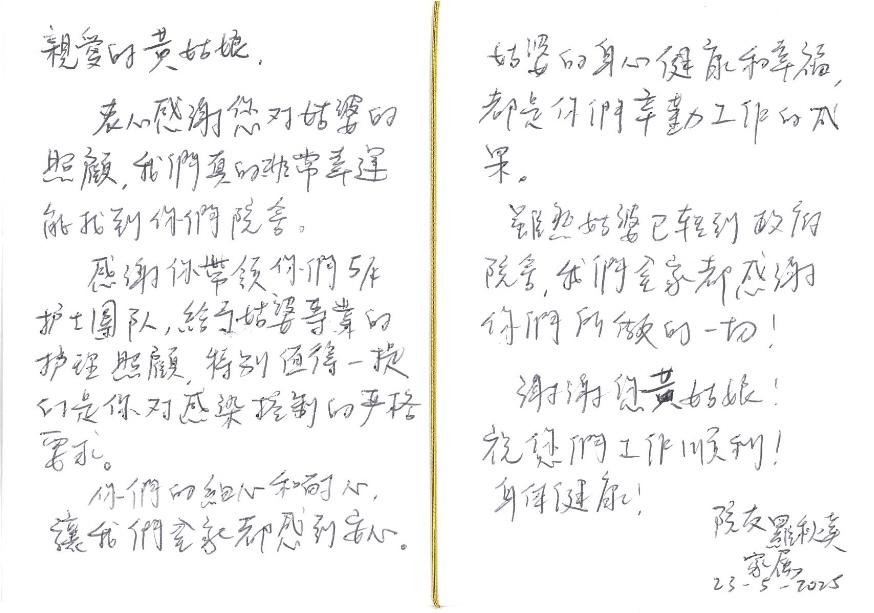 親愛的黃姑娘,
衷心感谢您对姑婆的
照顧,我們真的非常幸運
能找到你們院舍。
感谢你带领你們5/F
护士團队,給予姑婆专業的
护理照顧,特别值得一提
们是你对感染控制的严格
要求。
你們的細心和耐心,
讓我們全家都感到安心。
姑婆的身心健康和幸福,
都是你們辛勤工作的成
果。
雖然姑婆已轉到政府
院舍,我們全家都感谢
你們所做的一切!
谢谢您黃姑娘!
祝您們工作順利!
身体健康!
院友羅秋
家属
23-5-2025